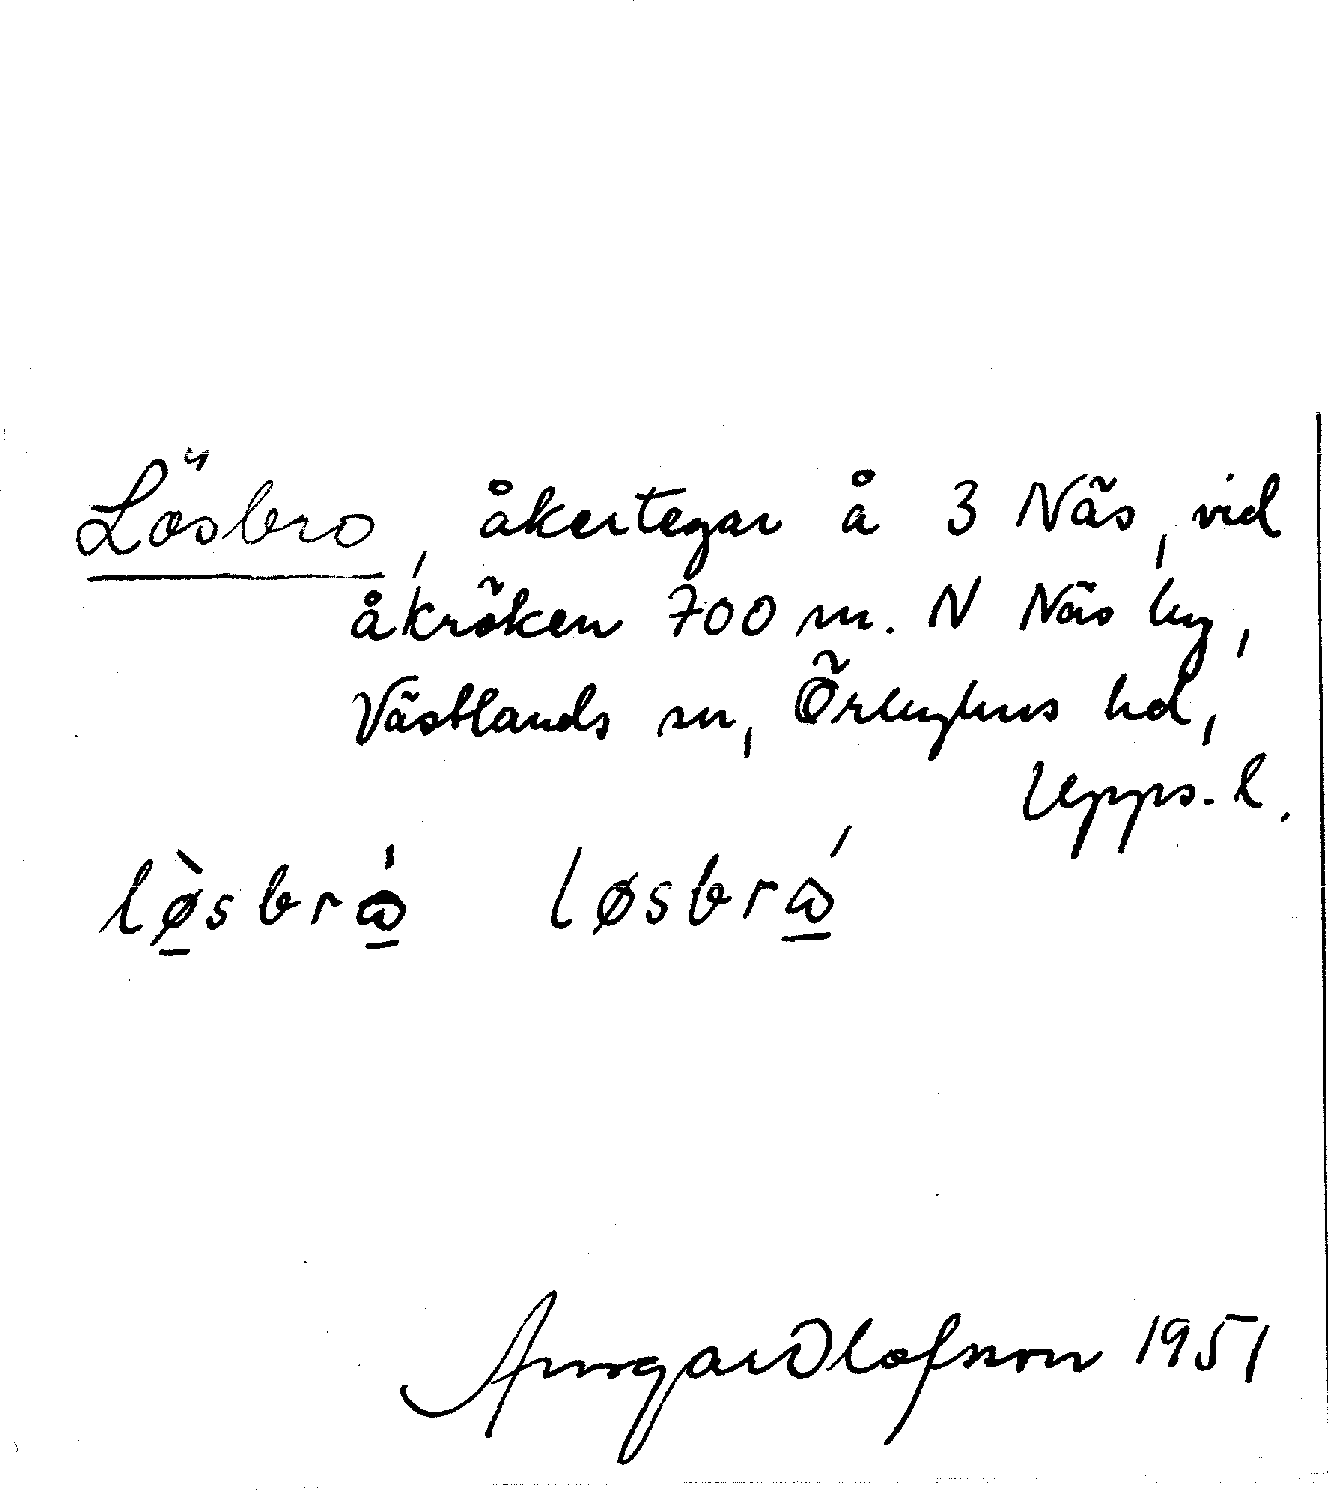 Lösbro, åkertegar å 3 Näs, vid
åkröken 700 m. N Näs by,
Västlands sn, Örbyhus hd,
Upps. l.
Ansgar Olofsson 1951